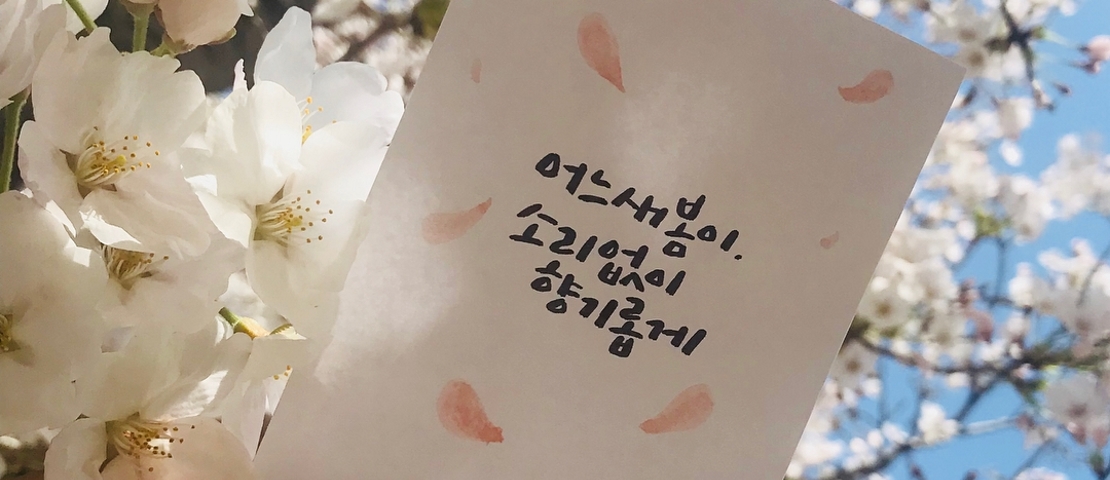 어느새 봄이.
소리 없이
향기롭게